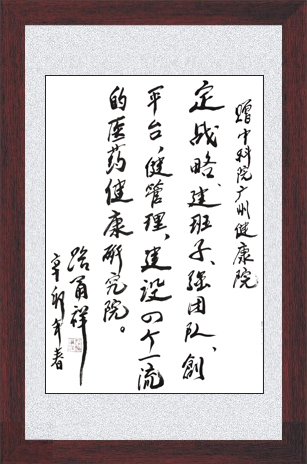 赠中科院广州健康院
定战略、建班子、强团队、創
平台、健管理、建设四个一流
的医药健康研究院。
路甬祥
辛卯年春